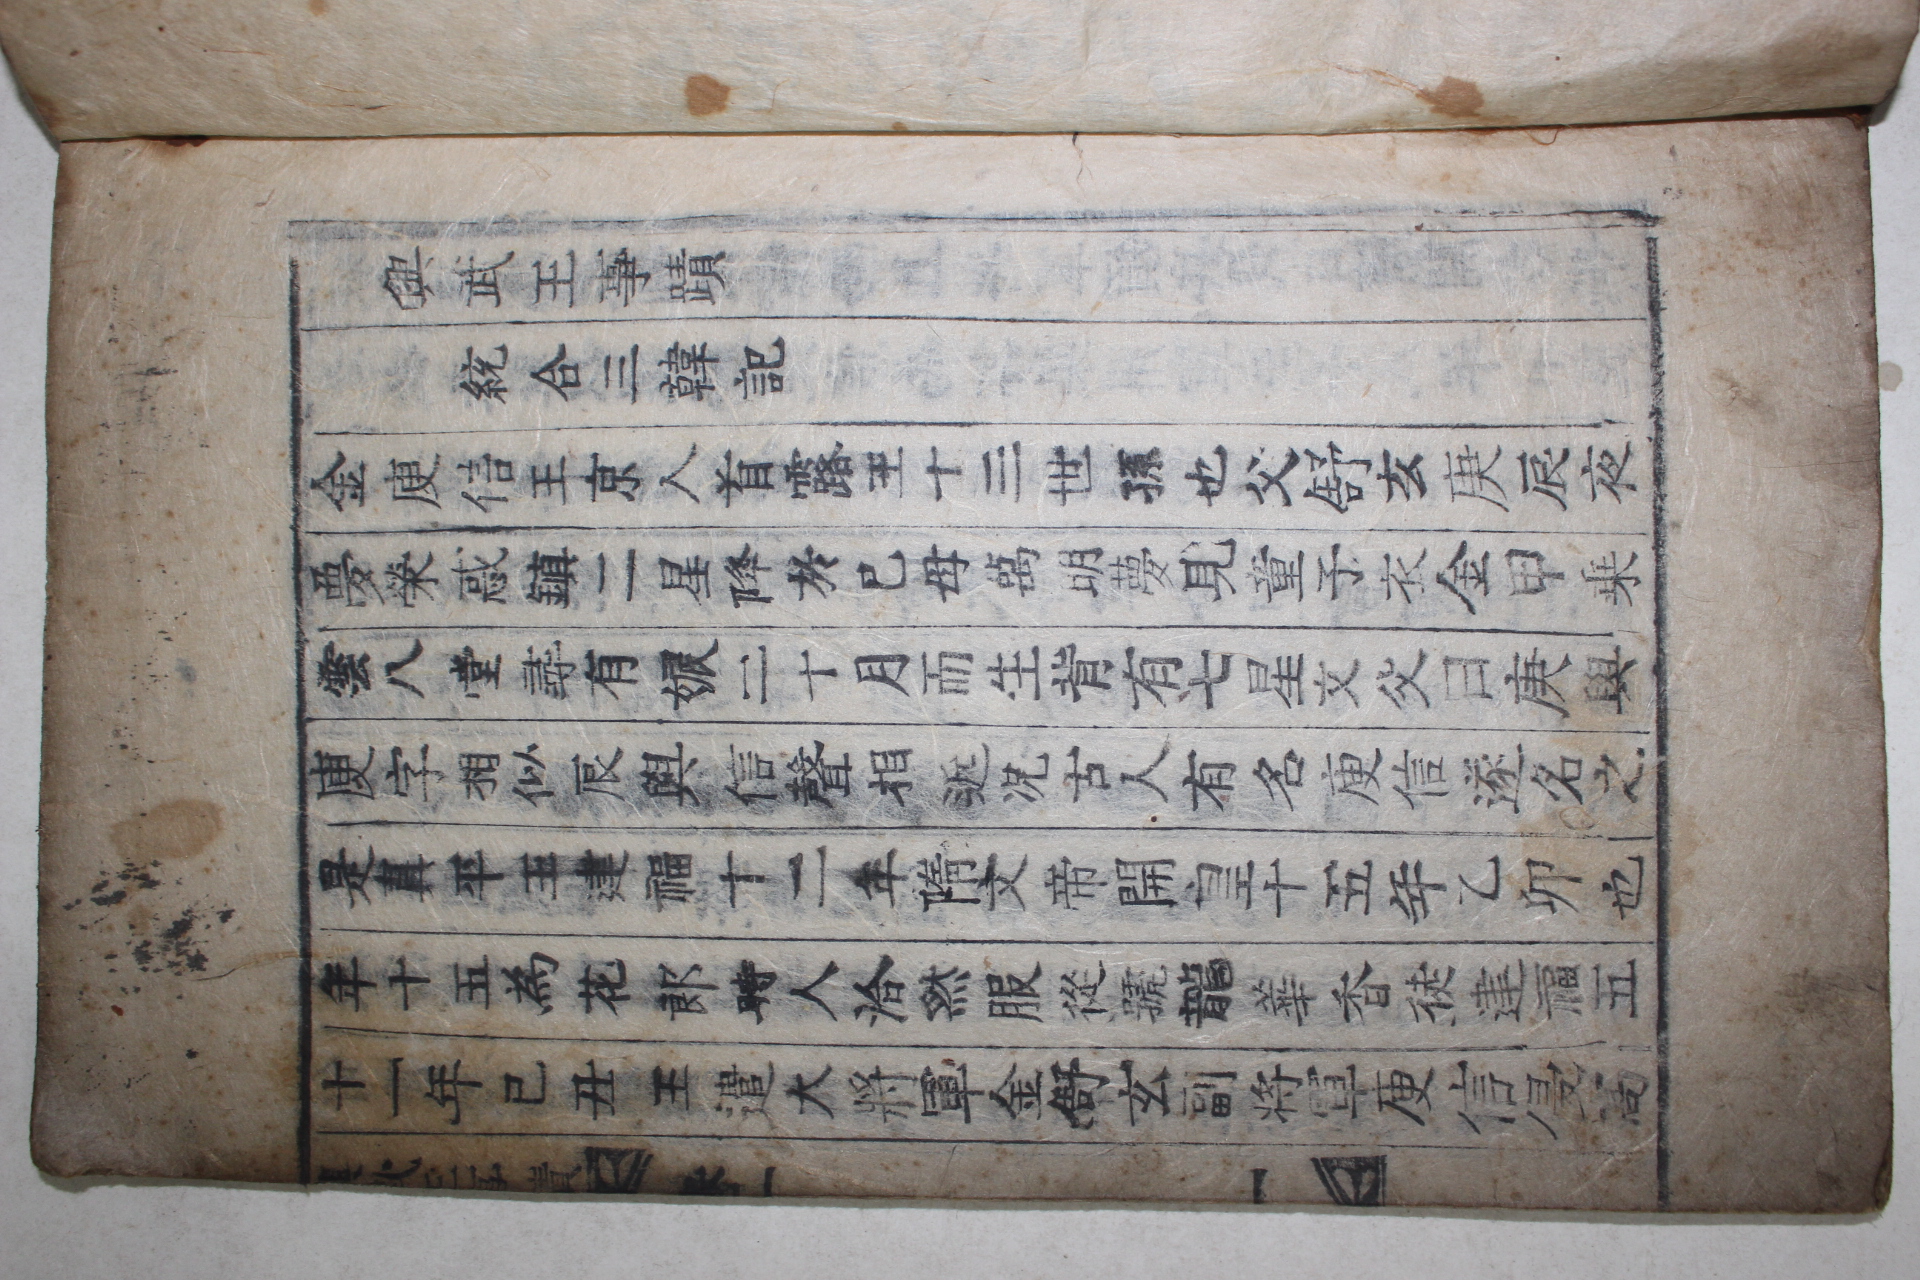 興武王事蹟
統合三韓記
金庾信王京人首露王十三世孫也父舒玄庚辰夜
夢熒惑鎭二星降於己母萬明夢見童子衣金甲乗
雲入堂尋有娠二十月而生背有七星文父曰庚與
庾字相似辰與信聲相近况古人有名庾信遂名之
是眞平王建福十二年隋文帝開皇十五年乙卯也
年十五為花郎時人洽然服從號龍華香徒建福五
十一年己丑王遣大將軍金舒玄副將軍庾信侵高